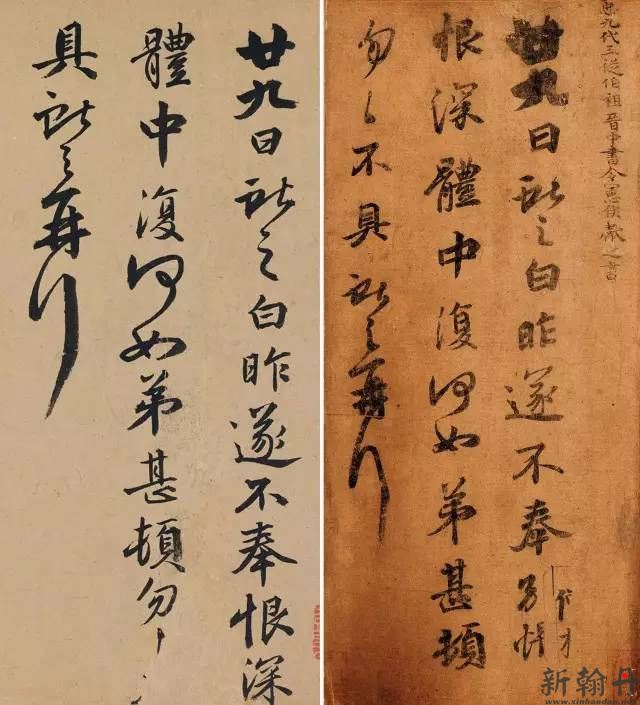 廿九日獻之白昨遂不奉恨深
體中復何如弟甚頓勿〻
具獻之再拜
九代三從伯祖晉中書令憲侯獻之書
廿九日獻之白昨遂不奉別悵
恨深體中復何如弟甚頓
勿〻不具獻之再拜
新翰丹